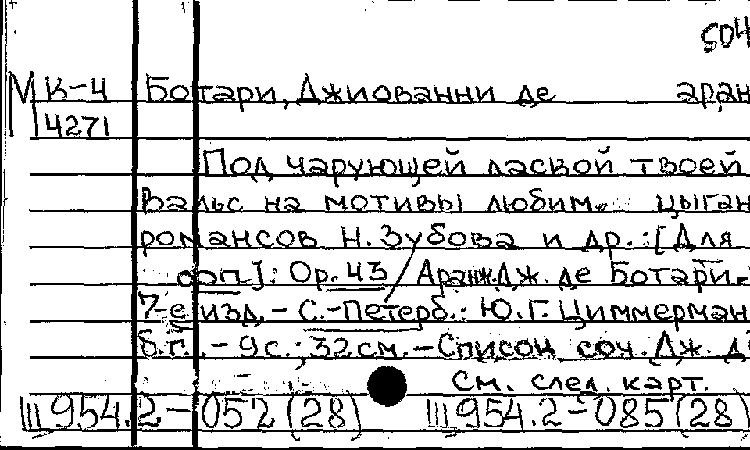 504
М К-4 Ботари, Джиованни де аран
4271
Под чарующей лаской твоей
Вальс на мотивы любим. цыган
романсов Н. Зубова и др. : [Для
соп.]: Op. 43 / Аранж. Дж. де Ботари.-
7-е изд. - С.-Петерб.: Ю.Г. Циммерман
б.г. - 9 с.; 32 см. - Список соч. Дж. д
См. след. карт.
Ш 954.2-052 (28) Ш 954.2-085 (28)